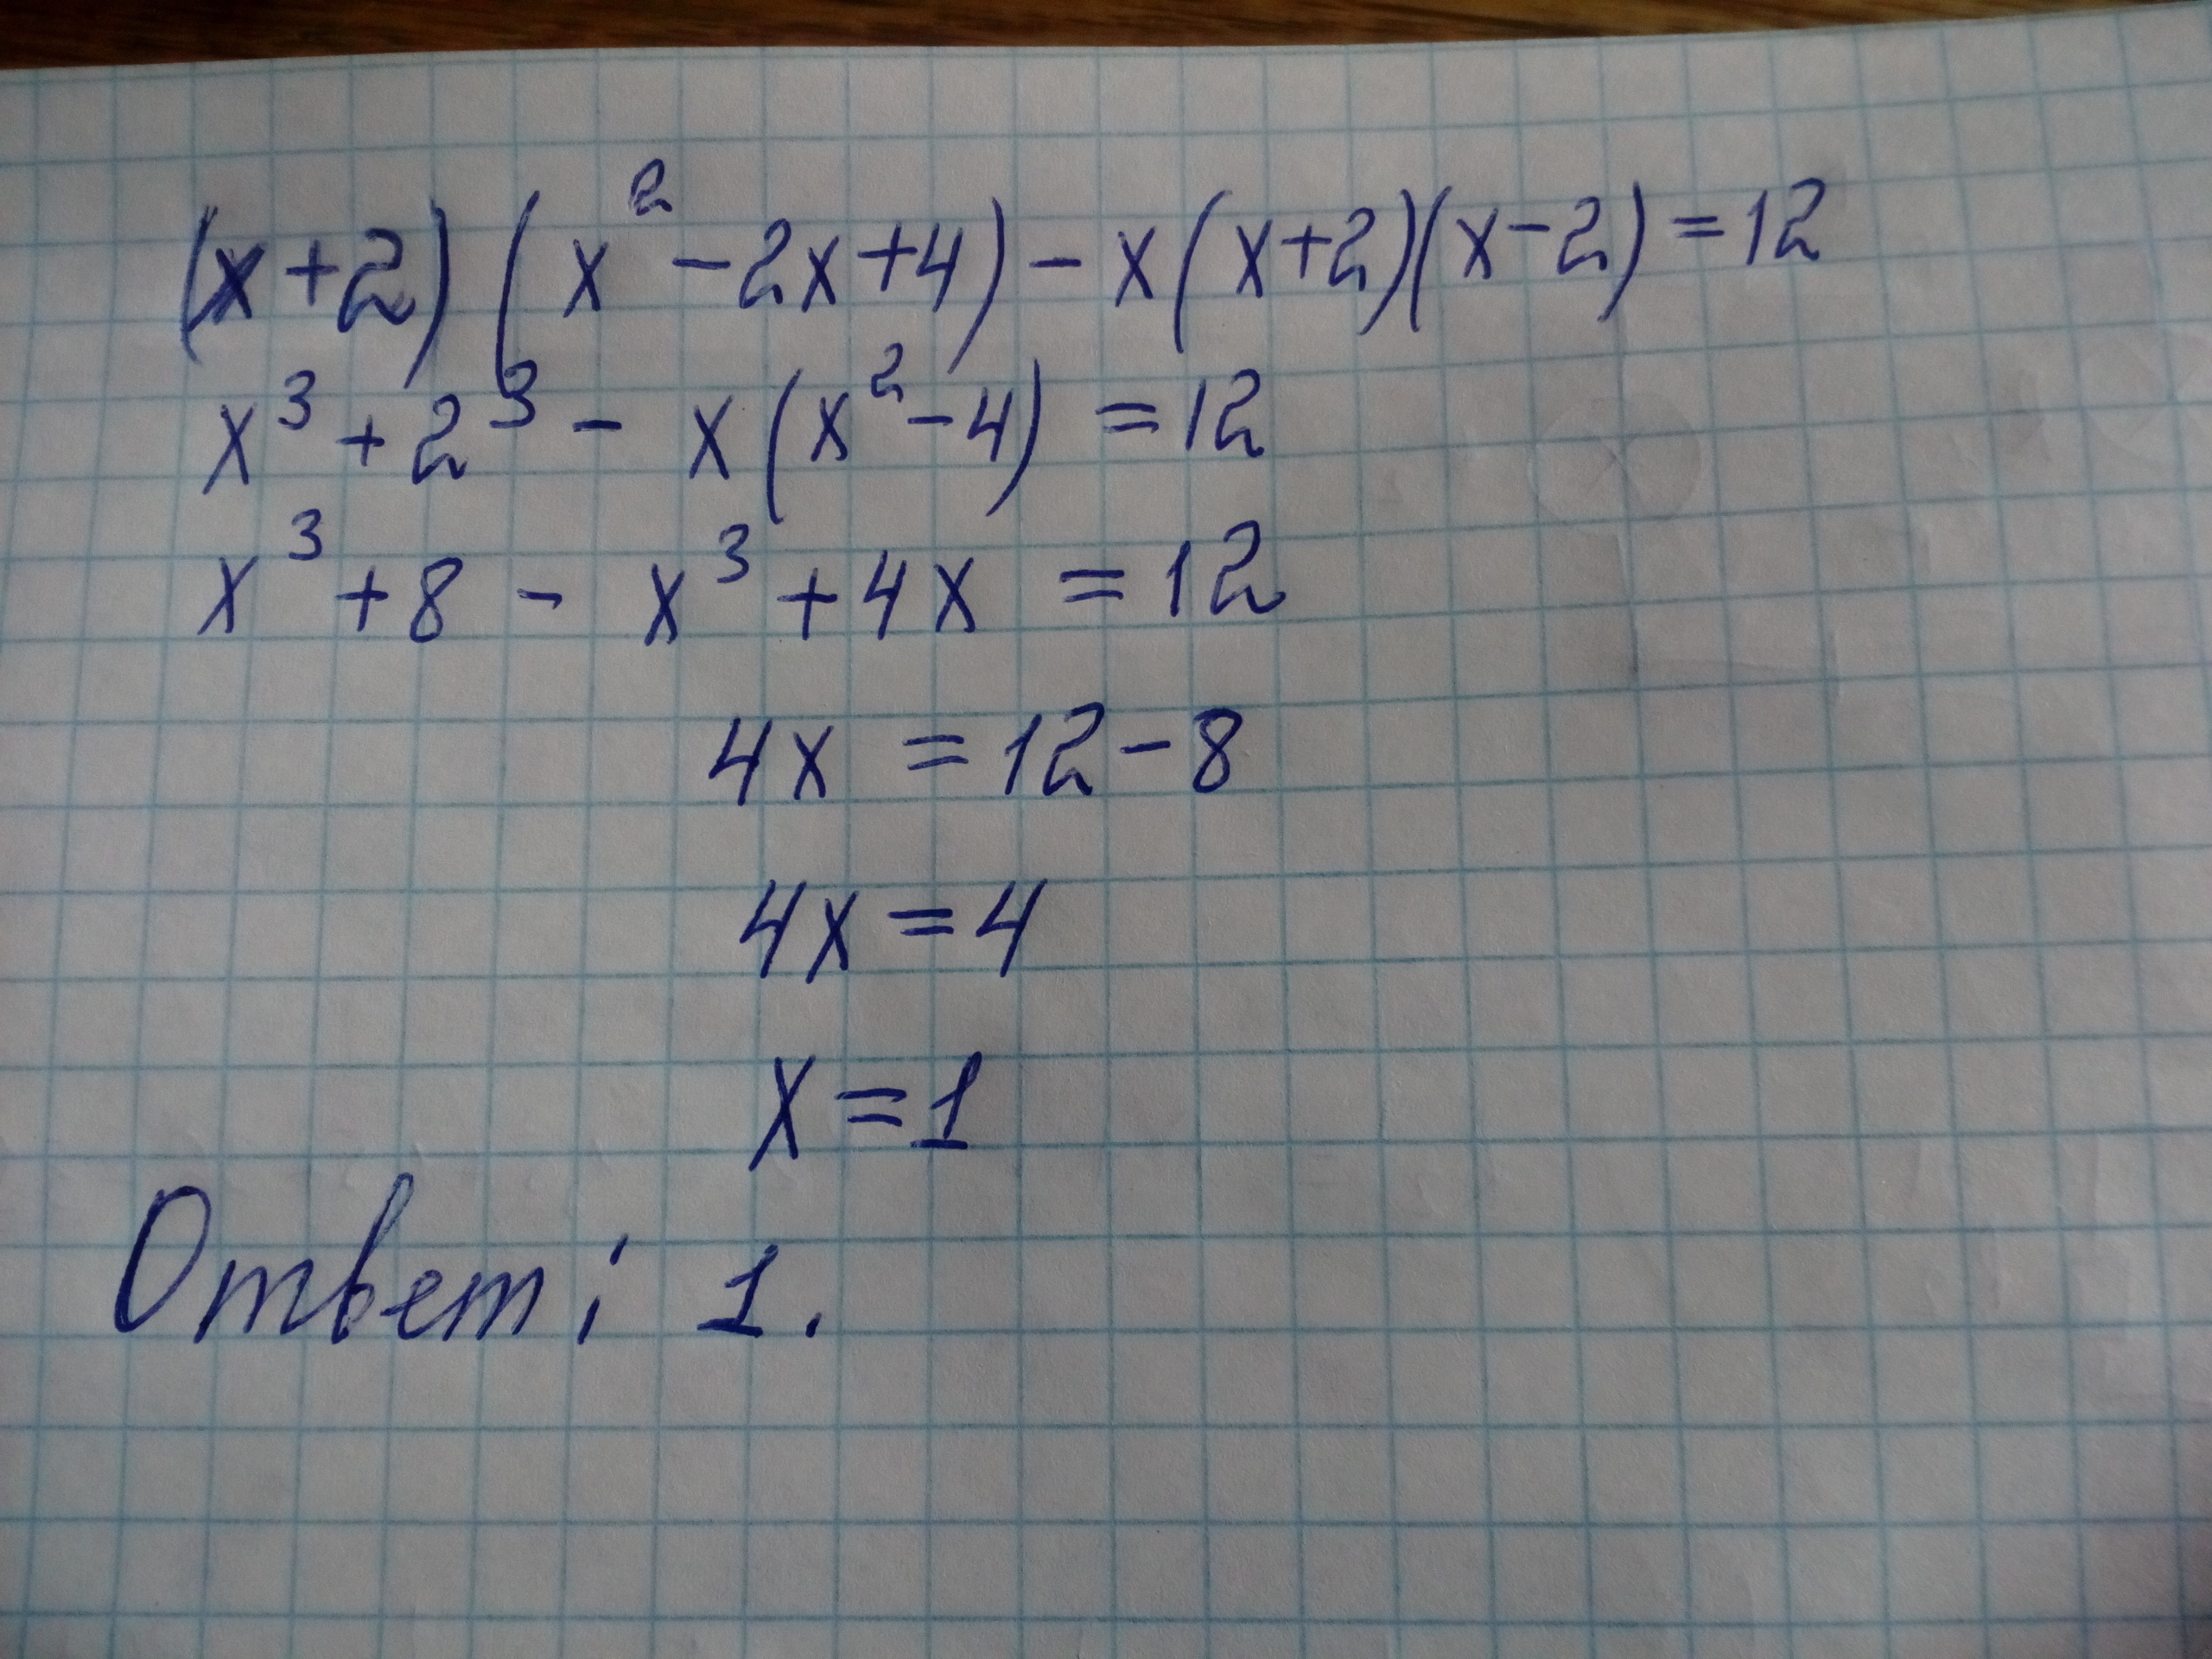 (x+2)(x²-2x+4)-x(x+2)(x-2)=12
x³+2³-x(x²-4)=12
x³+8-x³+4x=12
4x=12-8
4x=4
x=1
Ответ: 1.